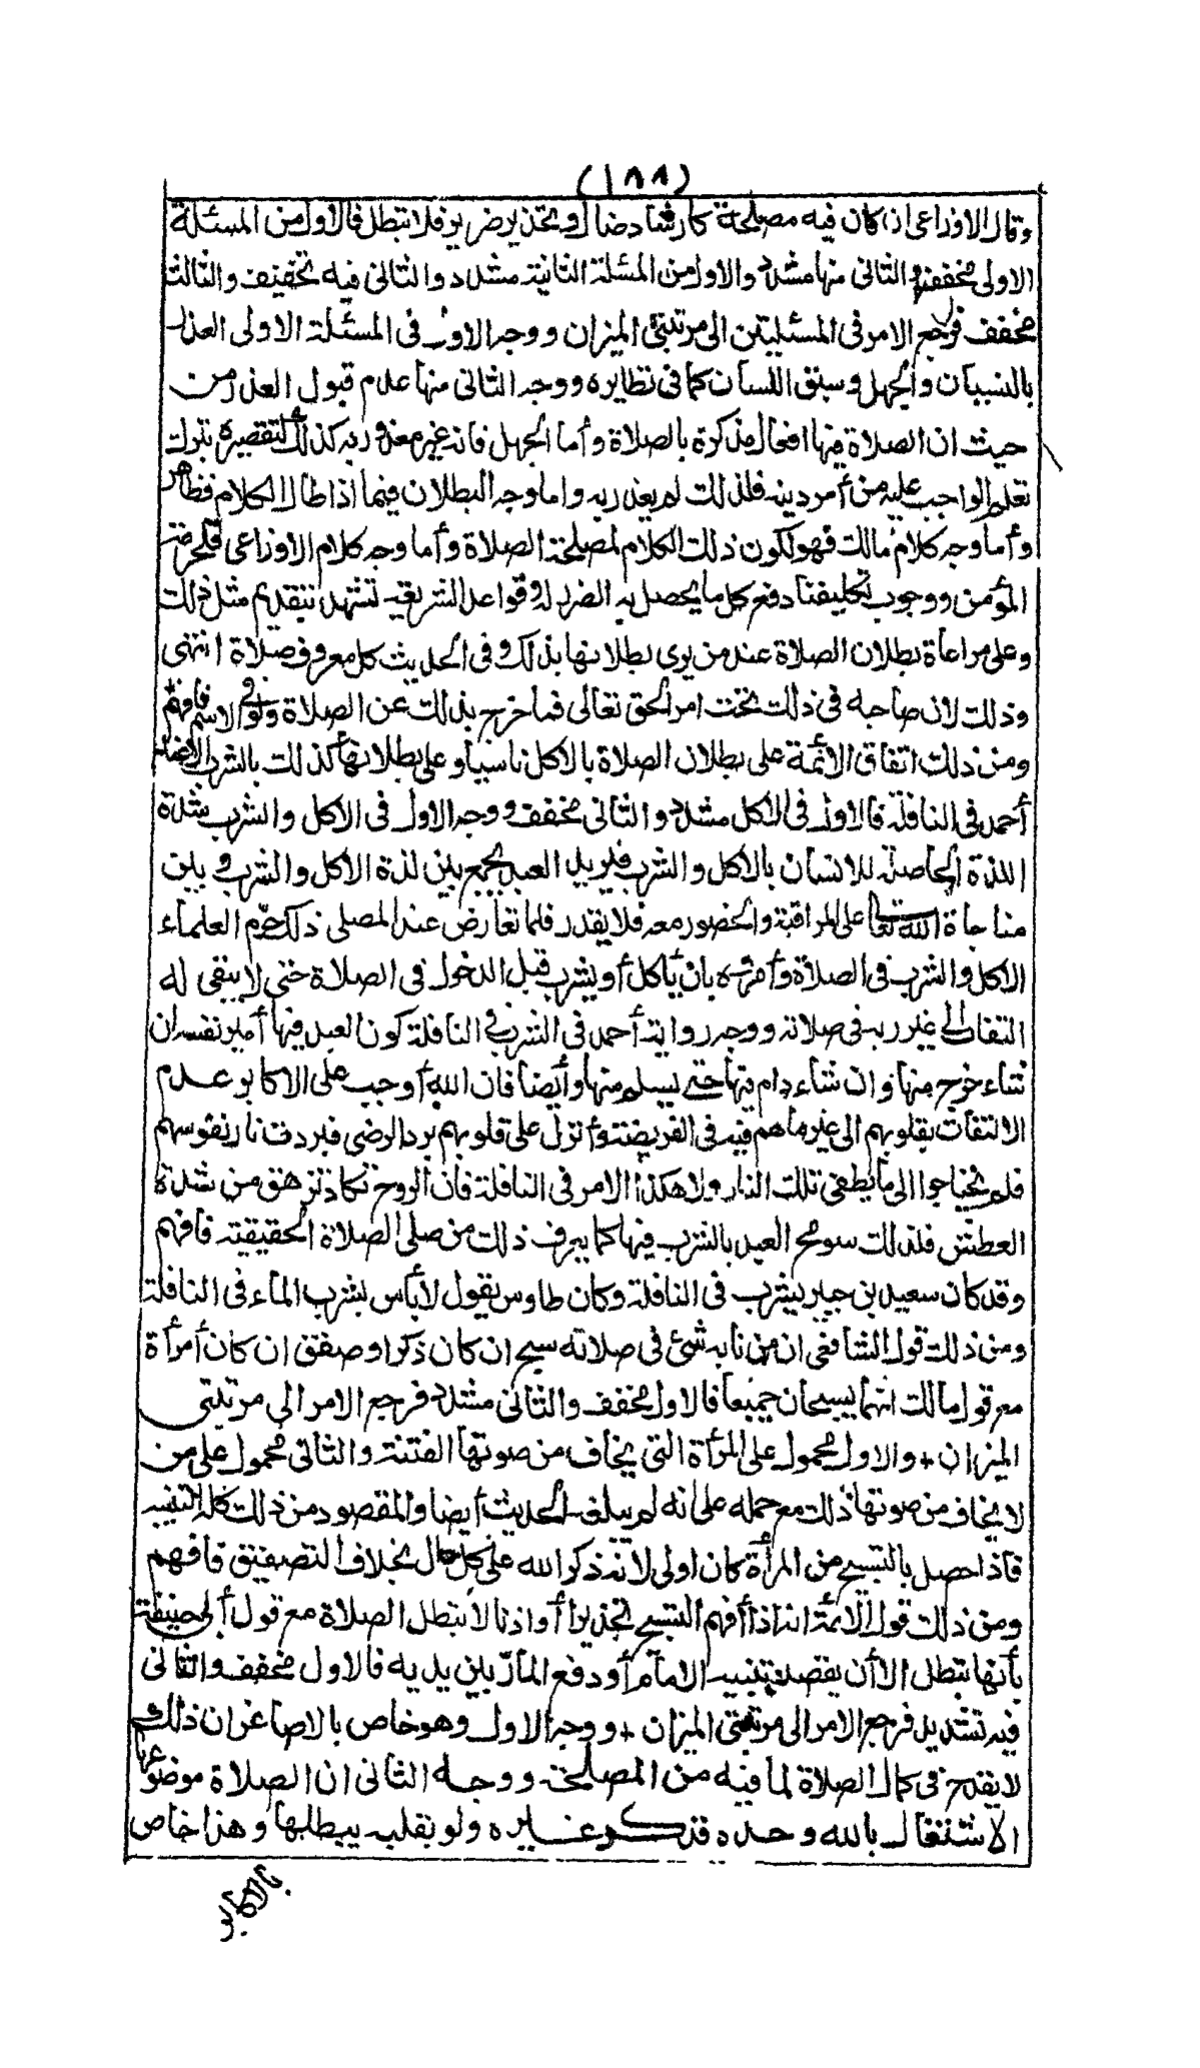 (١٨٨)
وقال الاوزاعى ان كان فيه مصلحة كارشاد ضال او تحذير ضرير فلا تبطل فالاول من المسئلة
الاولى مخفف والثانى منها مشدد والاول من المسئلة الثانية مشدد والثانى فيه تخفيف والثالث
مخفف فرجع الامر فى المسئلتين الى مرتبتى الميزان ووجه الاول فى المسئلة الاولى العذر
بالنسيان والجهل وسبق اللسان كما فى نظايره ووجه الثانى منها عدم قبول العذر من
حيث ان الصلاة فيها افعال مذكرة بالصلاة وأما الجهل فانه غير معذور به كذلك لتقصيره بترك
تعلم الواجب عليه من أمر دينه فلذلك لم يعذر به واما وجه البطلان فيما اذا طال الكلام فظاهر
وأما وجه كلام مالك فهو لكون ذلك الكلام لمصلحة الصلاة وأما وجه كلام الاوزاعى فلحرمة
المؤمن ووجوب تكليفنا دفع كل ما يحصل به الضرر له وقواعد الشريعة تشهد بتقديم مثل ذلك
وعلى مراعاة بطلان الصلاة عند من يرى بطلانها بذلك وفى الحديث كل معروف صلاة انتهى
وذلك لان صاحبه فى ذلك تحت امر الحق تعالى فما خرج بذلك عن الصلاة ولو فى الاسم فافهم
ومن ذلك اتفاق الأئمة على بطلان الصلاة بالاكل ناسيا وعلى بطلانها كذلك بالشرب الا عند
أحمد فى النافلة فالاول فى الاكل مشدد والثانى مخفف ووجه الاول فى الاكل والشرب شدة
اللذة الحاصلة للانسان بالاكل والشرب فيريد العبد يجمع بين لذة الاكل والشرب وبين
مناجاة الله تعا على المراقبة والحضور معه فلا يقدر فلما تعارض عند المصلى ذلك حرم العلماء
الاكل والشرب فى الصلاة وأمروه بان يأكل أو يشرب قبل الدخول فى الصلاة حتى لا يبقى له
التفات الى غير ربه فى صلاته ووجه رواية أحمد فى الشرب فى النافلة كون العبد فيها أمير نفسه ان
شاء خرج منها وان شاء دام فيها حتى يسلم منها وأيضا فان الله أوجب على الاكابر عدم
الالتفات بقلوبهم الى غير ما هم فيه فى الفريضة وأنزل على قلوبهم برد الرضى فبردت نار نفوسهم
فلم يحتاجوا الى ما يطفى تلك النار ولا هكذا الامر فى النافلة فان الروح تكاد تزهق من شدة
العطش فلذلك سومح العبد بالشرب فيها كما يعرف ذلك من صلى الصلاة الحقيقية فافهم
وقد كان سعيد بن جبير يشرب فى النافلة وكان طاوس يقول لا بأس بشرب الماء فى النافلة
ومن ذلك قول الشافعى ان من نابه شئ فى صلاته سبح ان كان ذكرا وصفق ان كان أمرأة
مع قول مالك انهما يسبحان جميعا فالاول مخفف والثانى مشدد فرجع الامر الى مرتبتى
الميزان + والاول محمول على المرأة التى يخاف من صوتها الفتنة والثانى محمول على من
لا يخاف من صوتها ذلك مع حمله على انه لم يبلغه الحديث أيضا والمقصود من ذلك كله التنبيه
فاذا حصل بالتسبيح من المرأة كان اولى لانه ذكر الله على كل حال بخلاف التصفيق فافهم
ومن ذلك قول الائمة انه اذا أفهم التسبيح تحذيرا أو اذنا لا تبطل الصلاة مع قول أبى حنيفة
بأنها تبطل الا أن يقصد تنبيه الامام أو دفع المار بين يديه فالاول مخفف والثانى
فيه تشديد فرجع الامر الى مرتبتى الميزان + ووجه الاول وهو خاص بالاصاغر ان ذلك
لا يقدح فى كمال الصلاة لما فيه من المصلحة ووجه الثانى ان الصلاة موضوعها
الاشتغال بالله وحده فذكر غيره ولو بقلبه يبطلها وهذا خاص
بالاكابر